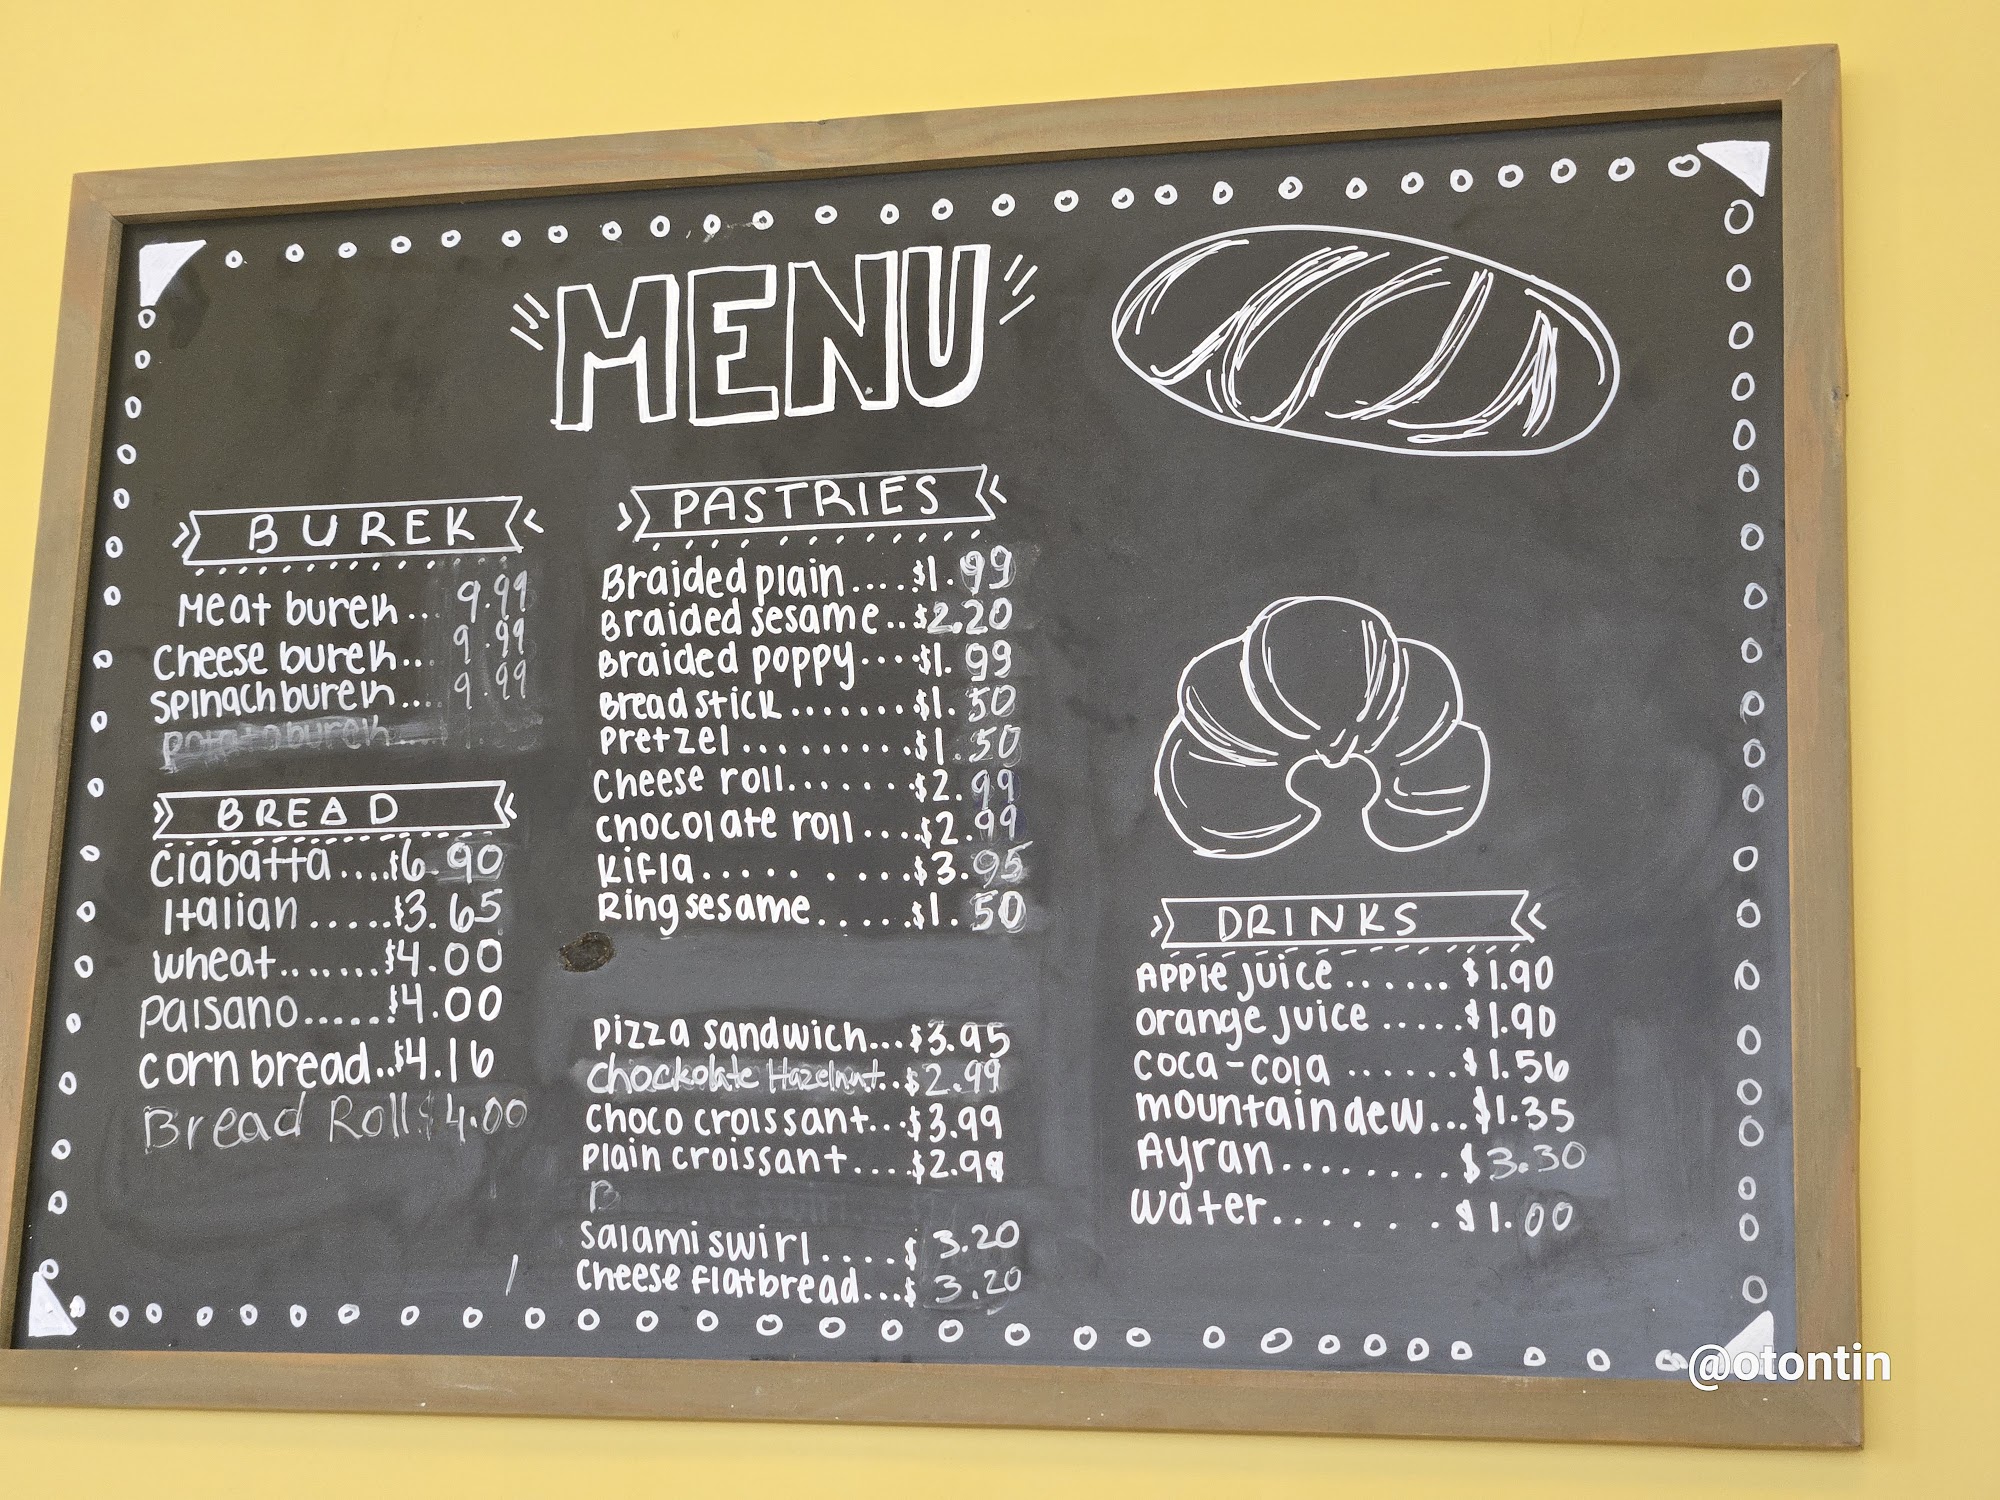 MENU
BUREK
Meat burek... 9.99
Cheese burek... 9.99
Spinach burek.... 9.99
Potato burek....
BREAD
Ciabatta....$6.90
Italian.....$3.65
Wheat.......$4.00
Paisano......$4.00
Corn bread..$4.16
Bread Roll $4.00
PASTRIES
Braided plain....$1.99
Braided sesame..$2.20
Braided poppy....$1.99
Bread stick.......$1.50
Pretzel.........$1.50
Cheese roll......$2.99
Chocolate roll....$2.99
Kifla..... ....$3.95
Ring sesame.....$1.50
Pizza sandwich...$3.95
Chockolate Hazelnut..$2.99
Choco croissant...$3.99
Plain croissant....$2.99
B
Salami swirl....$ 3.20
Cheese flatbread...$ 3.20
DRINKS
Apple juice...... $1.90
Orange juice .....$1.90
Coca-cola ......$1.56
mountain dew...$1.35
Ayran........$3.30
Water...... .$1.00
@otontin